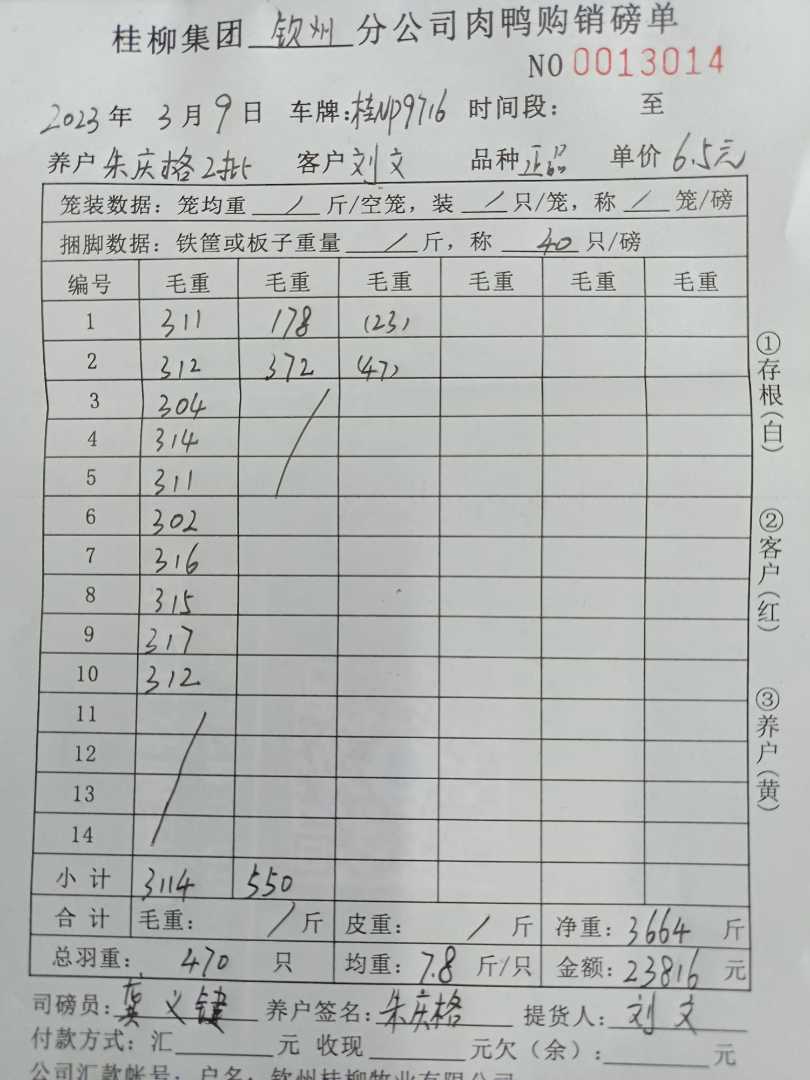 桂柳集团 钦州 分公司肉鸭购销磅单
NO 0013014
2023 年 3 月 9 日 车牌:桂NP9716 时间段: 至
养户 朱庆格2批 客户 刘文 品种 正品 单价 6.5元
笼装数据: 笼均重 / 斤/空笼, 装 / 只/笼, 称 / 笼/磅
捆脚数据: 铁筐或板子重量 / 斤, 称 40 只/磅
编号 毛重 毛重 毛重 毛重 毛重 毛重
1 311 178 (23)
2 312 372 (47)
3 304
4 314
5 311
6 302
7 316
8 315
9 317
10 312
11
12
13
14
小计 3114 550
合计 毛重: / 斤 皮重: / 斤 净重: 3664 斤
总羽重: 470 只 均重: 7.8 斤/只 金额: 23816 元
司磅员: 龚义键 养户签名: 朱庆格 提货人: 刘文
付款方式: 汇 元 收现 元欠(余): 元
公司汇款帐号: 户名: 钦州桂柳牧业有限公司
①存根(白)
②客户(红)
③养户(黄)